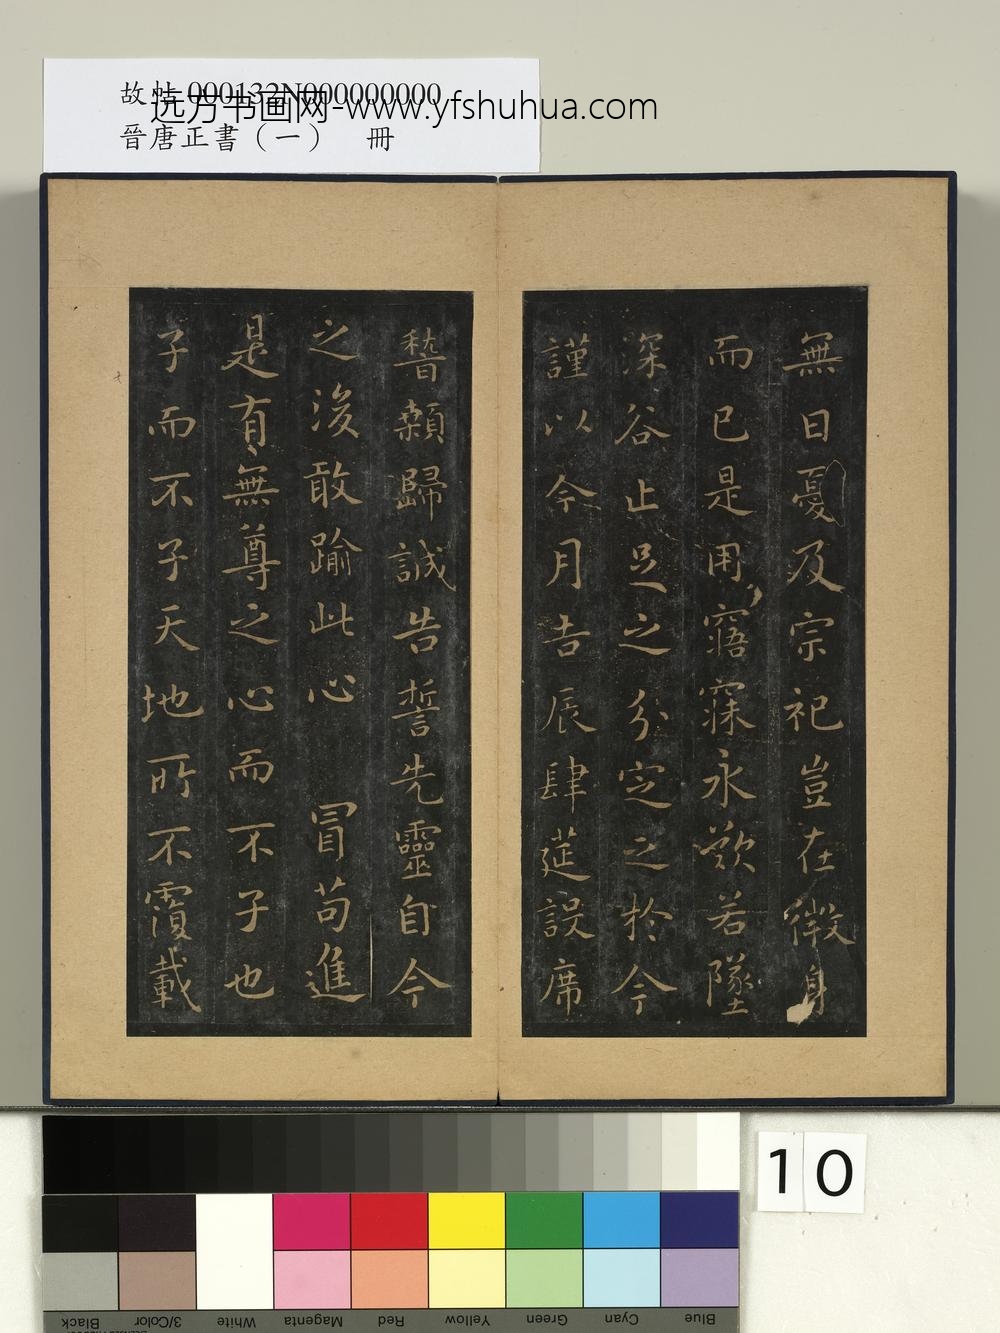 故帖 000132N000000000
远方书画网-www.yfshuhua.com
晉唐正書（一） 冊
無日憂及宗祀豈在微身
而已是用寤寐永歎若墜
深谷止足之分定之於今
謹以今月吉辰肆莚設席
稽顙歸誠告誓先靈自今
之後敢踰此心 冒苟進
是有無尊之心而不子也
子而不子天地所不覆載
10
Black 3/Color White Magenta Red Yellow Green Cyan Blue